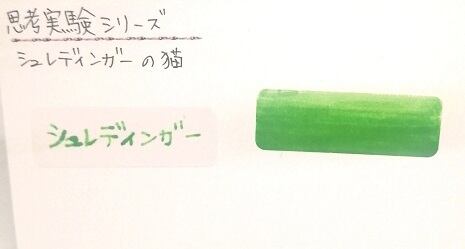 思考実験シリーズ
シュレディンガーの猫
シュレディンガー